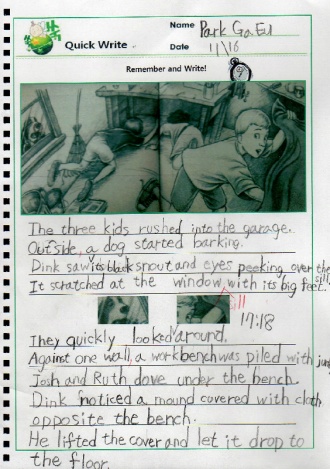 Name Park Ga Eu
Quick Write
Date 1/16
Remember and Write!
The three kids rushed into the garage.
Outside, a dog started barking.
Dink saw its black snout and eyes peeking over the sill
It scratched at the window with its big feet.
ill
17:18
They quickly looked around.
Against one wall, a workbench was piled with junk
Josh and Ruth dove under the bench.
Dink noticed a mound covered with cloth
opposite the bench.
He lifted the cover and let it drop to
the floor.